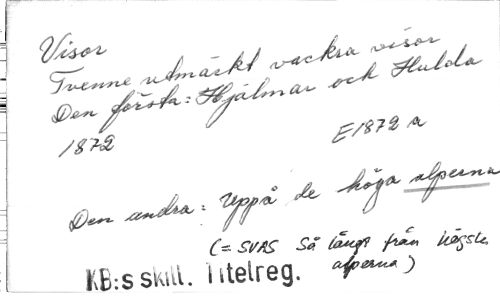 Visor
Tvenne utmärkt vackra visor
Den första: Hjälmar och Hulda
1872
E1872 a
Den andra: Uppå de höga alperna
(= SVAS Så långt från högsta
alperna)
KB:s skill. Titelreg.